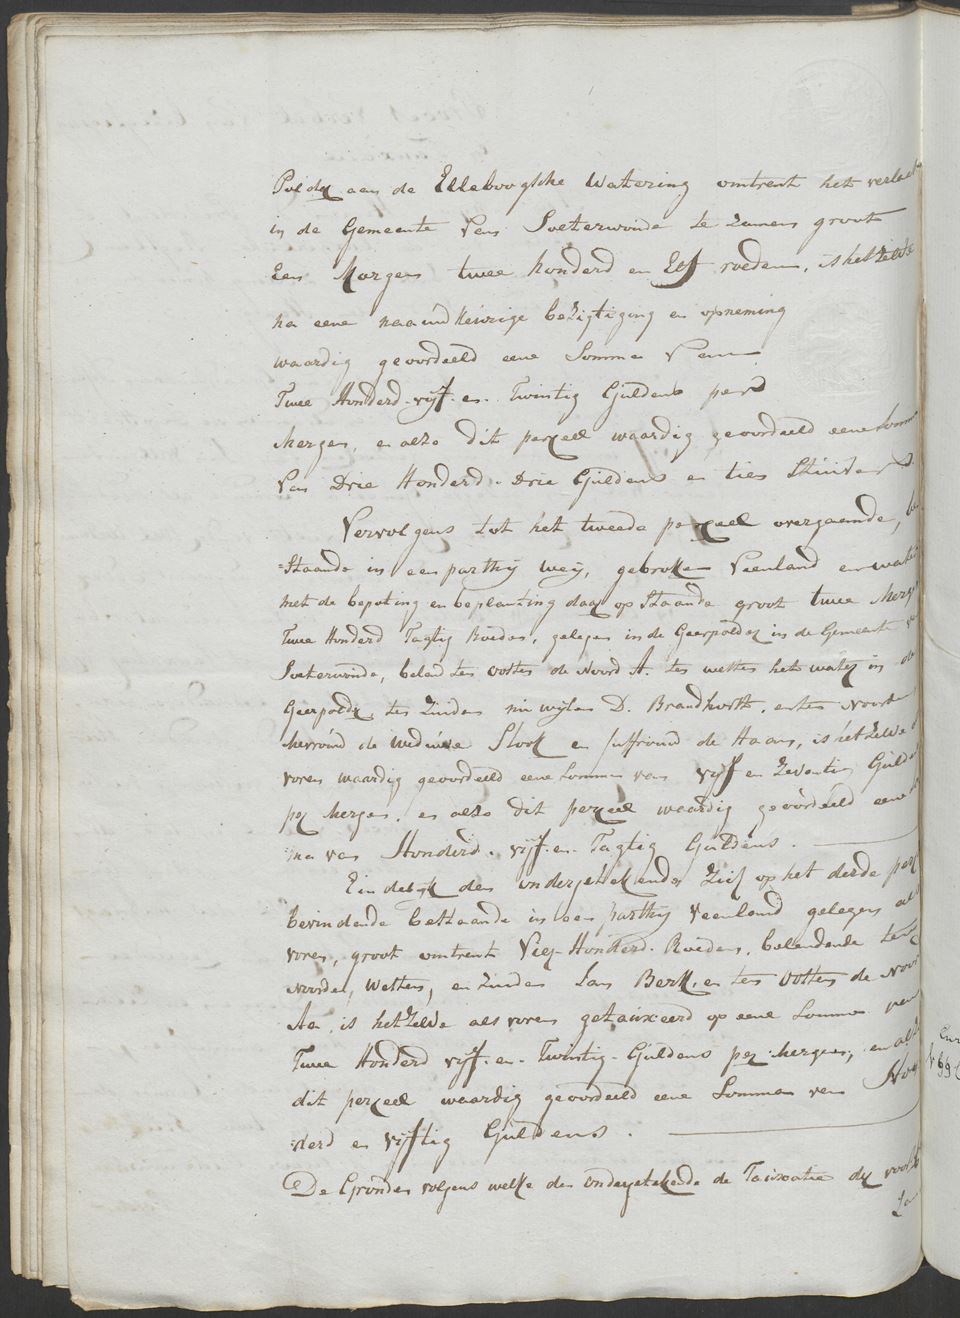 Polder aan de Elleboogsche Watering omtrent het verlaet
in de Gemeente van Soeterwoude te zamen groot
Een Morgen twee honderd en Elf roeden, is het zelve
na eene naauwkeurige bezigtiging en opneming
waardig geoordeeld eene Somma van
Twee Honderd vijf en Twintig Guldens per
Mergen, en alzo dit perceel waardig geoordeeld eene Somma
van Drie Honderd Drie Guldens en tien Stuivers
Vervolgens tot het tweede perceel overgaande, be
=staande in een parthij weij, gebroken Veenland en water
met de bepoting en beplanting daar op staande groot twee Merg
Twee Honderd Tagtig Roeden, gelegen in de Geerpolder in de Gemeente v
Soeterwoude, belend ten oosten de Noord A. ten westen het water in de
Geerpolder, ten Zuiden nu wijlen D. Brandhorst, en ten Noorde
Merous de Weduwe Slook en Juffrouw de Haan, is het zelve
voren waardig geoordeeld eene Somma van vijf en Zeventig Gulde
per Mergen, en alzo dit perceel waardig geoordeeld eene
ma van Honderd vijf en Tagtig Guldens.
Eindelijk den ondergetekende Zich op het derde per
bevindende bestaande in een parthij Veenland gelegen als
voren, groot omtrent Vier Honderd Roeden, belendende ten
Noorden, Westen, en Zuiden Jan Berk, en ten Oosten de Noor
Aa, is het Zelve als voren getauxeerd op eene Somma van
Twee Honderd vijf en Twintig Guldens per Mergen, en alz
dit perceel waardig geoordeeld eene Somma van Hon
=derd en vijftig Guldens.
De Gronden volgens welke den ondergetekende de Tauxatie der voorsz